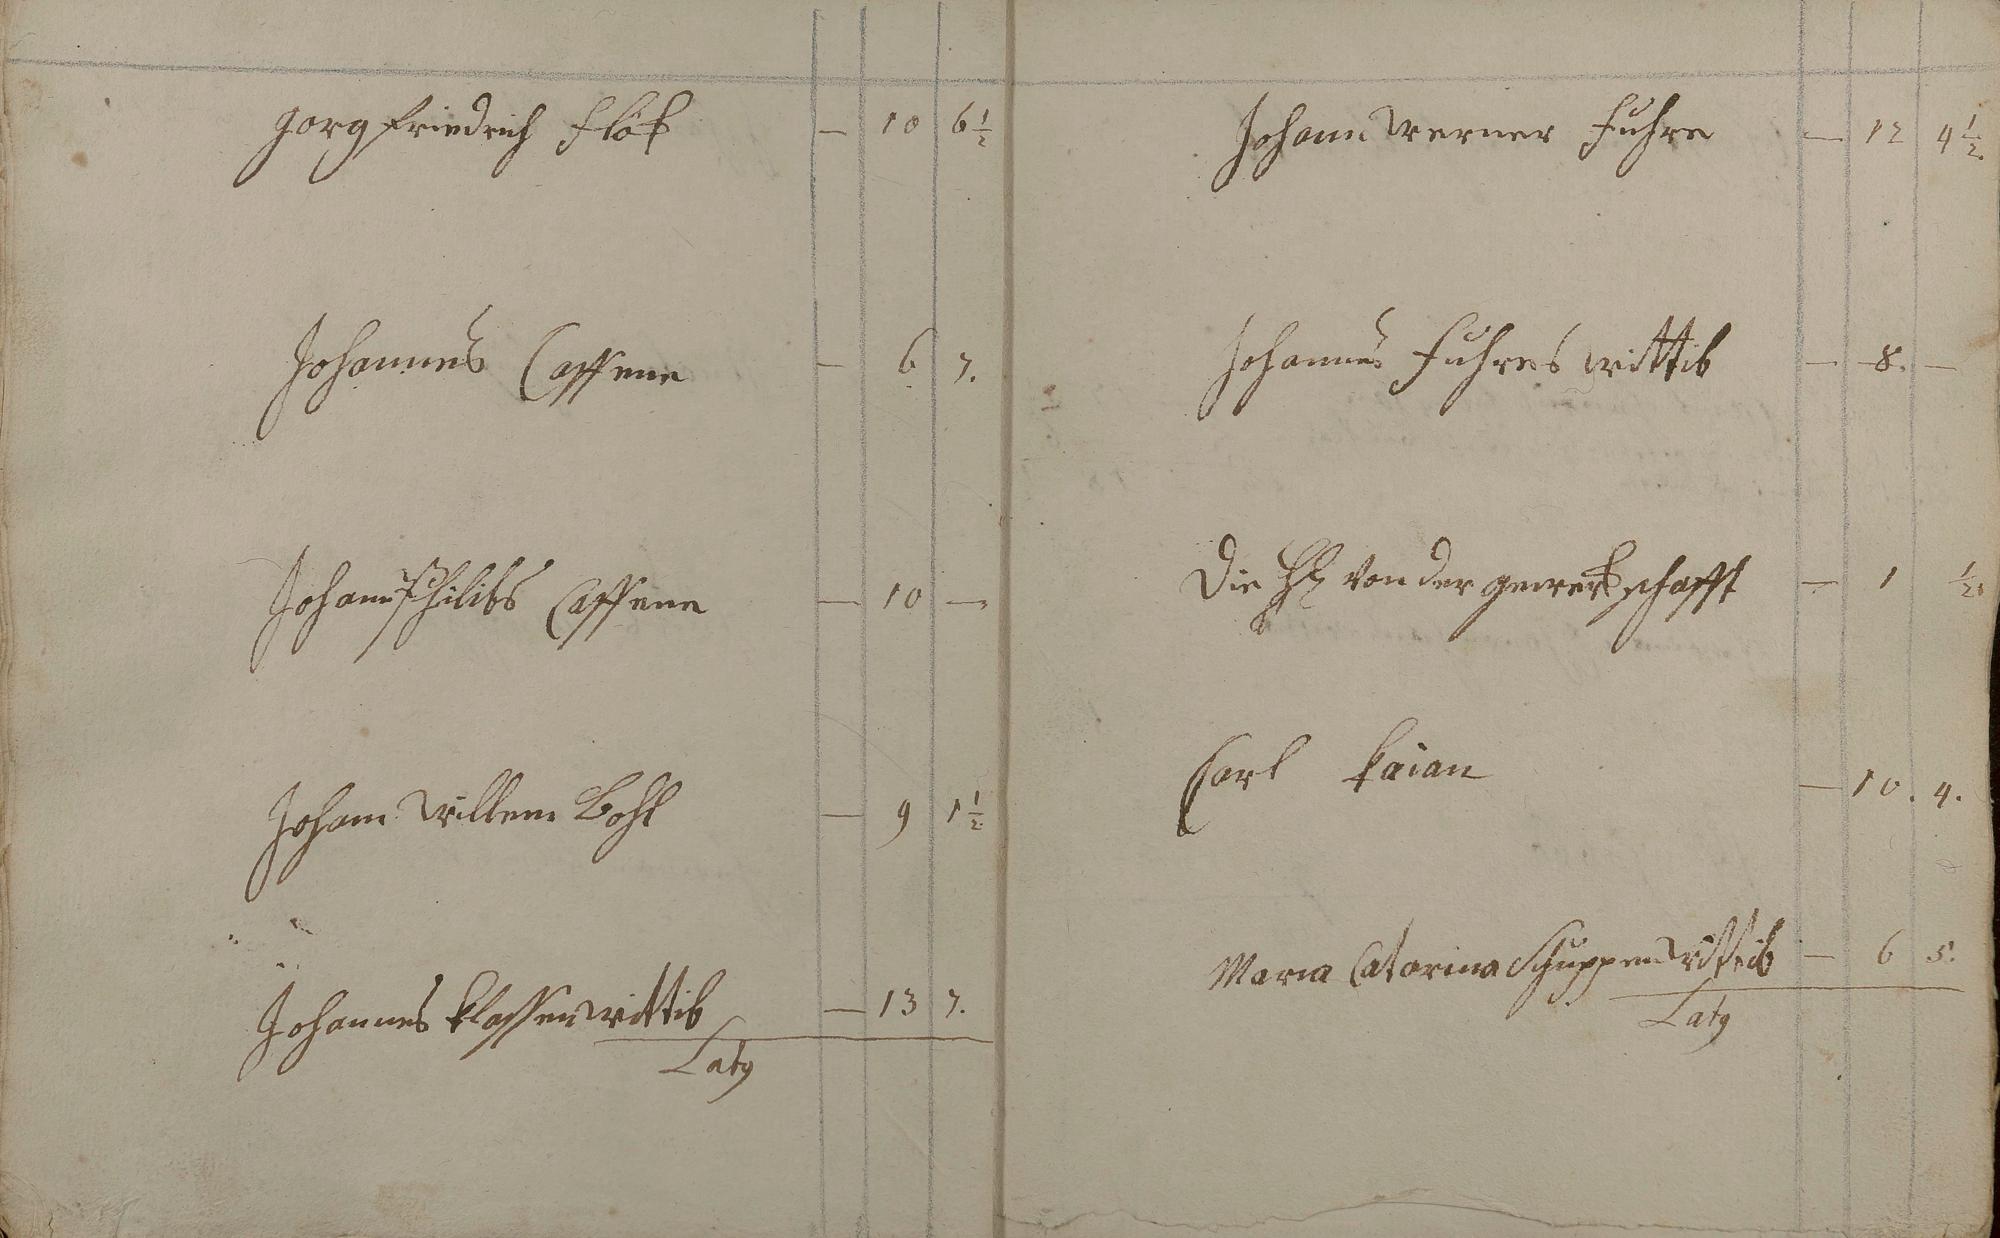 Jorg friedrich Flök — 10 6 1/2
Johannes Caffene — 6 7.
Johann Philibs Caffene — 10 —
Johann Willem Bohl — 9 1 1/2
Johannes Klassen wittib — 13 7.
Latg
Johann Werner Fuhre — 12 4 1/2.
Johannes Fuhres wittib — 8. —
Die HE von der gewerkschafft — 1 1/2.
Carl — 10. 4.
Maria Catarina Schuppen wittib — 6 5.
Latg